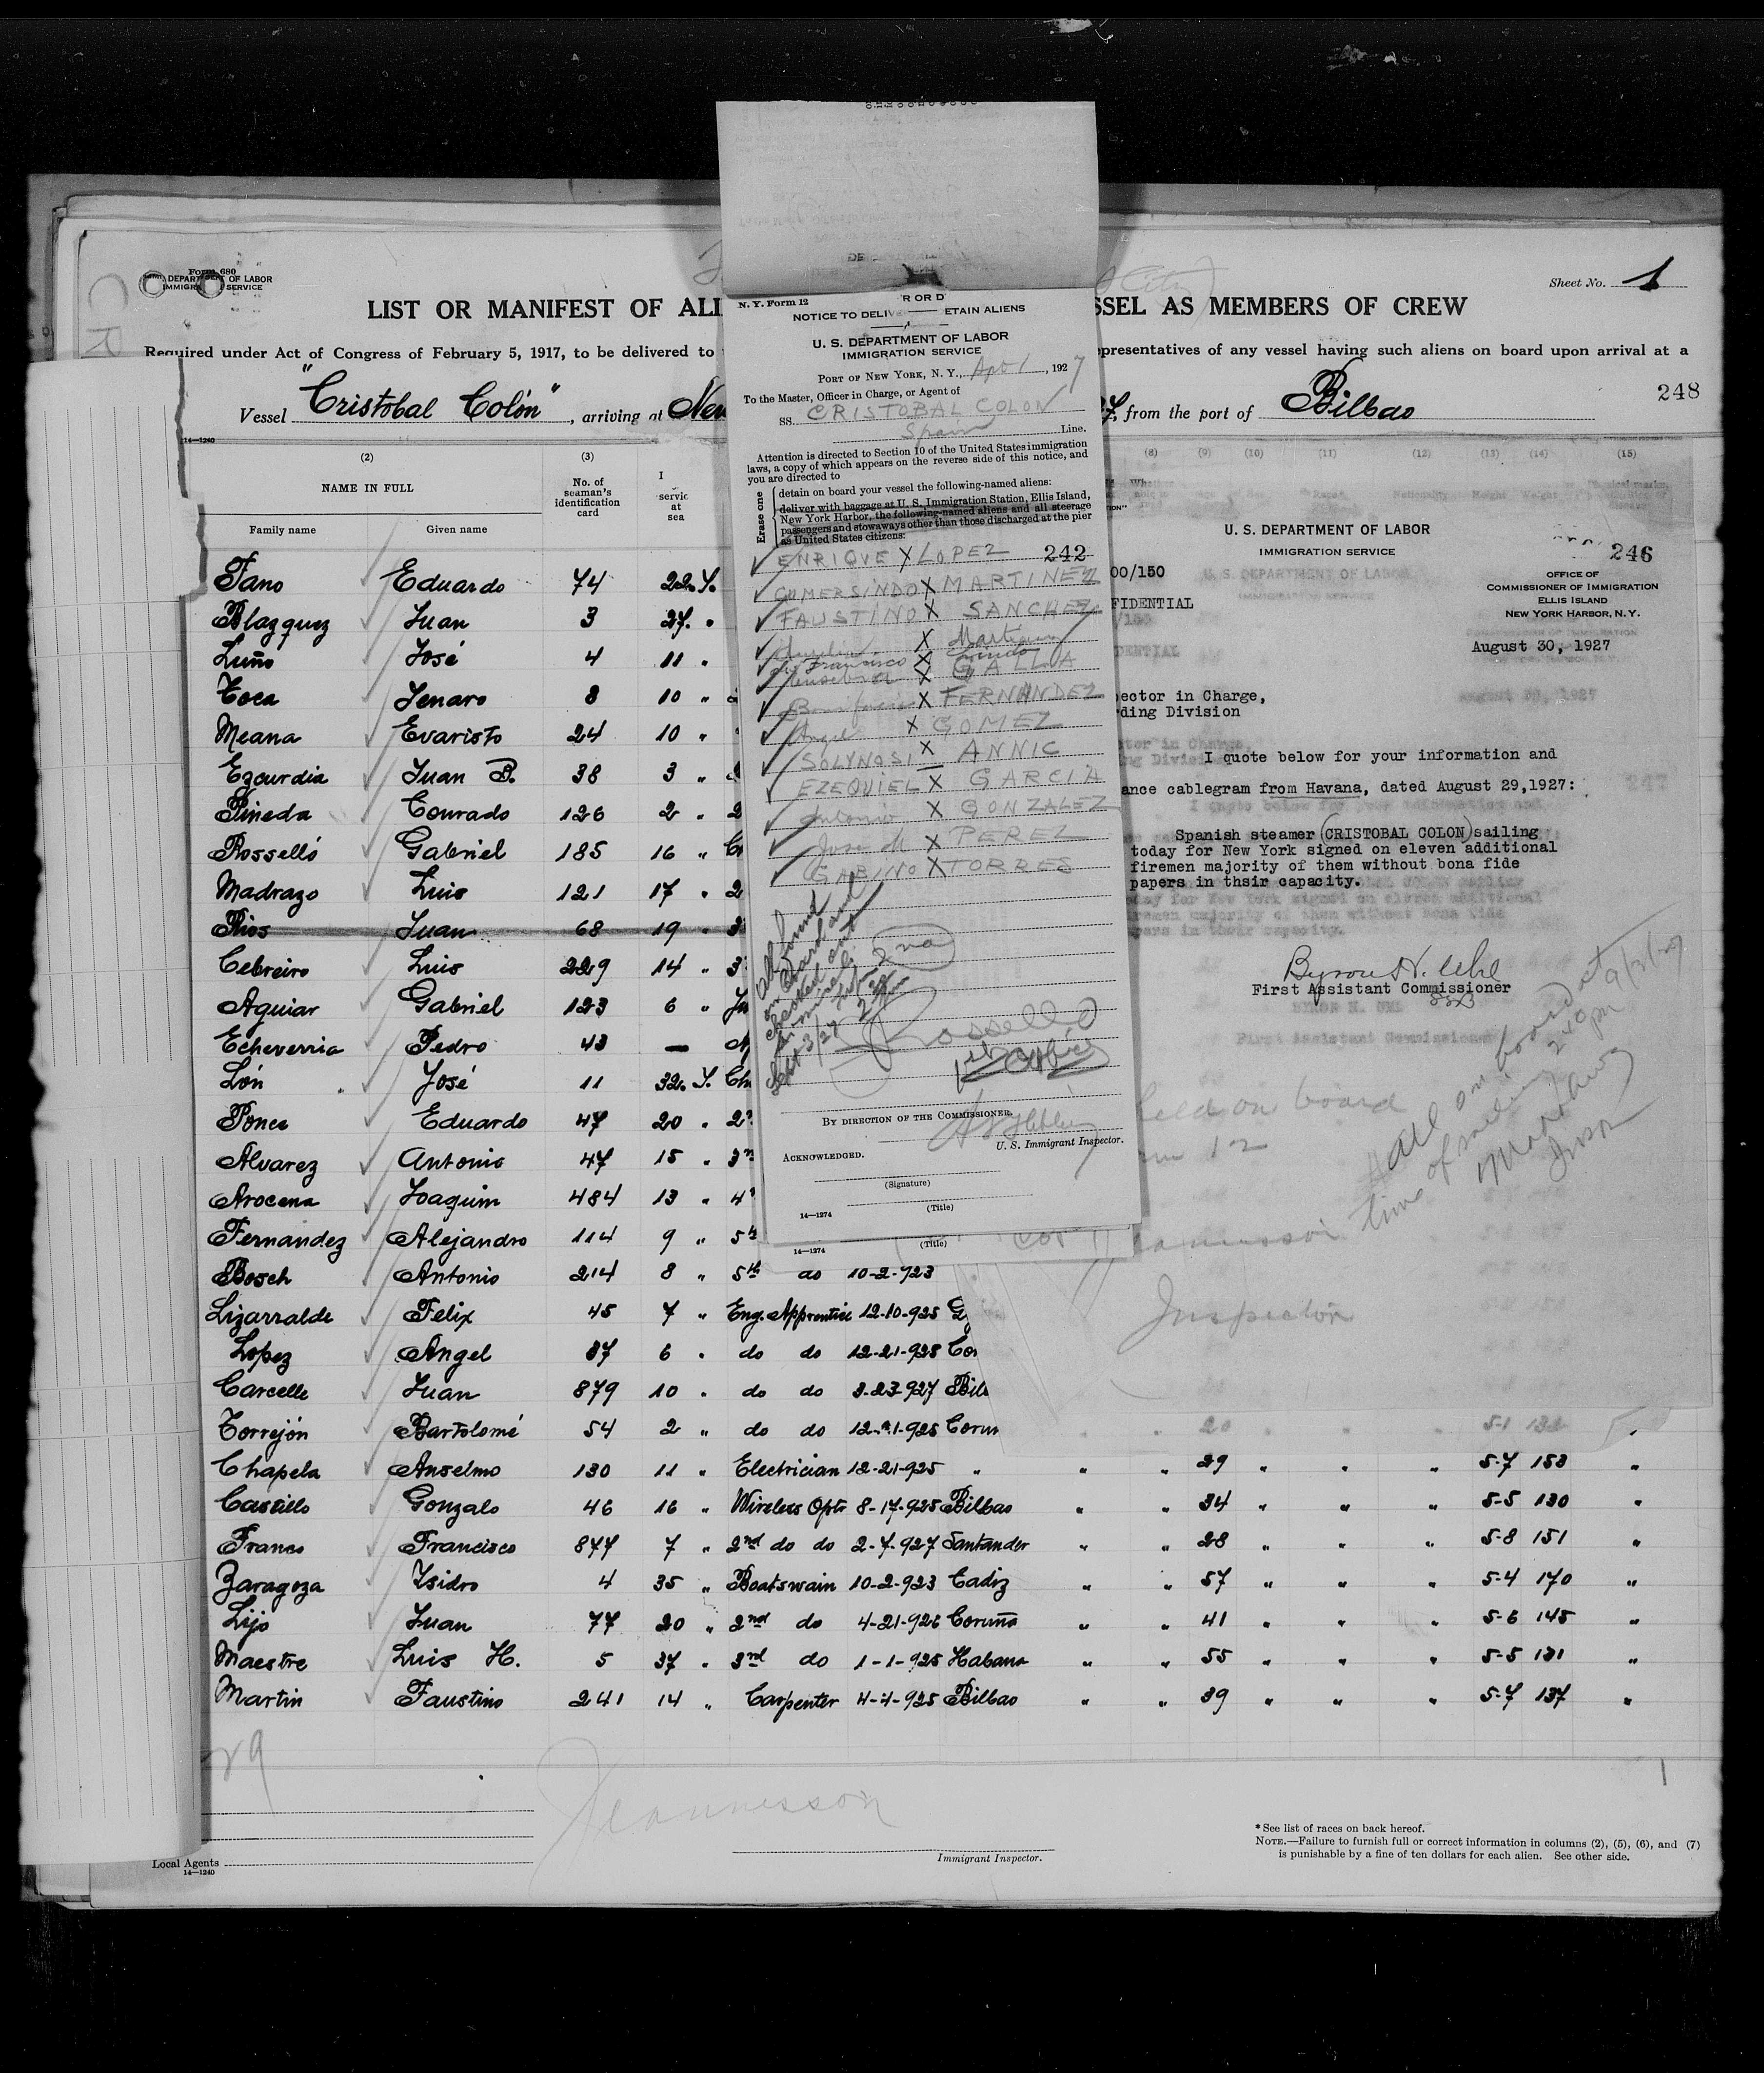 Form 680
DEPARTMENT OF LABOR
IMMIGR SERVICE
Sheet No. 1
LIST OR MANIFEST OF ALI
SSEL AS MEMBERS OF CREW
Required under Act of Congress of February 5, 1917, to be delivered to
epresentatives of any vessel having such aliens on board upon arrival at a
Vessel "Cristobal Colón", arriving at New
from the port of Bilbao
248
14—1240
(2) (3)
NAME IN FULL
No. of seaman's identification card
servic at sea
Family name Given name
Fano Eduardo 74 22 Y.
Blazquez Juan 3 27 "
Luño José 4 11 "
Toca Jenaro 8 10 "
Meana Evaristo 24 10 "
Ezcurdia Juan B. 38 3 "
Pineda Conrado 126 2 " 2
Rosselló Gabriel 185 16 "
Madrazo Luis 121 17 " 2
Rios Juan 68 19 " 3
Cebreiro Luis 229 14 " 3
Aguiar Gabriel 123 6 "
Echeverria Pedro 43 —
Lón José 11 32 Y. Ch
Ponce Eduardo 47 20 " 2
Alvarez Antonio 47 15 " 3
Arocena Joaquim 484 13 " 4
Fernandez Alejandro 114 9 " 5
Bosch Antonio 214 8 " 5th do 10-2-923
Lizarralde Felix 45 7 " Eng. Apprentice 12-10-925
Lopez Angel 87 6 " do do 12-21-925 Cor
Carcelle Juan 879 10 " do do 3-23-927 Bilb
Torrejón Bartolomé 54 2 " do do 12-21-925 Corun " " 20 " " " 5-1 132 "
Chapela Anselmo 130 11 " Electrician 12-21-925 " " " 29 " " " 5-7 153 "
Castillo Gonzalo 46 16 " Wireless Optr 8-17-925 Bilbao " " 34 " " " 5-5 130 "
Franco Francisco 877 7 " 2nd do do 2-7-927 Santander " " 28 " " " 5-8 151 "
Zaragoza Isidro 4 35 " Boatswain 10-2-923 Cadiz " " 57 " " " 5-4 170 "
Lijo Juan 77 20 " 2nd do 4-21-926 Coruña " " 41 " " " 5-6 145 "
Maestre Luis H. 5 37 " 3rd do 1-1-925 Habana " " 55 " " " 5-5 131 "
Martin Faustino 241 14 " Carpenter 4-4-925 Bilbao " " 39 " " " 5-7 137 "
29
Jeannesson
Local Agents
14—1240
Immigrant Inspector.
*See list of races on back hereof.
NOTE.—Failure to furnish full or correct information in columns (2), (5), (6), and (7)
is punishable by a fine of ten dollars for each alien. See other side.
N. Y. Form 12
R OR D
NOTICE TO DELIV ETAIN ALIENS
U. S. DEPARTMENT OF LABOR
IMMIGRATION SERVICE
PORT OF NEW YORK, N. Y., , 1927
To the Master, Officer in Charge, or Agent of
SS. CRISTOBAL COLON
Spain Line.
Attention is directed to Section 10 of the United States immigration
laws, a copy of which appears on the reverse side of this notice, and
you are directed to
Erase one
detain on board your vessel the following-named aliens:
deliver with baggage at U. S. Immigration Station, Ellis Island,
New York Harbor, the following-named aliens and all steerage
passengers and stowaways other than those discharged at the pier
as United States citizens:
ENRIQUE X LOPEZ 242
GUMERSINDO X MARTINEZ
FAUSTINO X SANCHEZ
X Martinez
Francisco X
X GALLA
Bonifacio X FERNANDEZ
Angel X GOMEZ
SOLYNOSI X ANNIC
EZEQUIEL X GARCIA
Antonio X GONZALEZ
Jose M X PEREZ
GABINO X TORRES
All found
on board and
checked out
Sept 3/27
Rossello
1st Officer
BY DIRECTION OF THE COMMISSIONER.
U. S. Immigrant Inspector.
ACKNOWLEDGED.
(Signature)
(Title)
14—1274
14—1274 (Title)
(8) (9) (10) (11) (12) (13) (14) (15)
U. S. DEPARTMENT OF LABOR
IMMIGRATION SERVICE
246
OFFICE OF
COMMISSIONER OF IMMIGRATION
ELLIS ISLAND
NEW YORK HARBOR, N. Y.
00/150
FIDENTIAL
August 30, 1927
pector in Charge,
rding Division
I quote below for your information and
ance cablegram from Havana, dated August 29,1927:
Spanish steamer (CRISTOBAL COLON) sailing
today for New York signed on eleven additional
firemen majority of them without bona fide
papers in thsir capacity.
Byron H. Uhl
First Assistant Commissioner
held on board
12
All on board at
time of sailing 240 pm 9/3/27
Insp
Jeannesson
Inspector